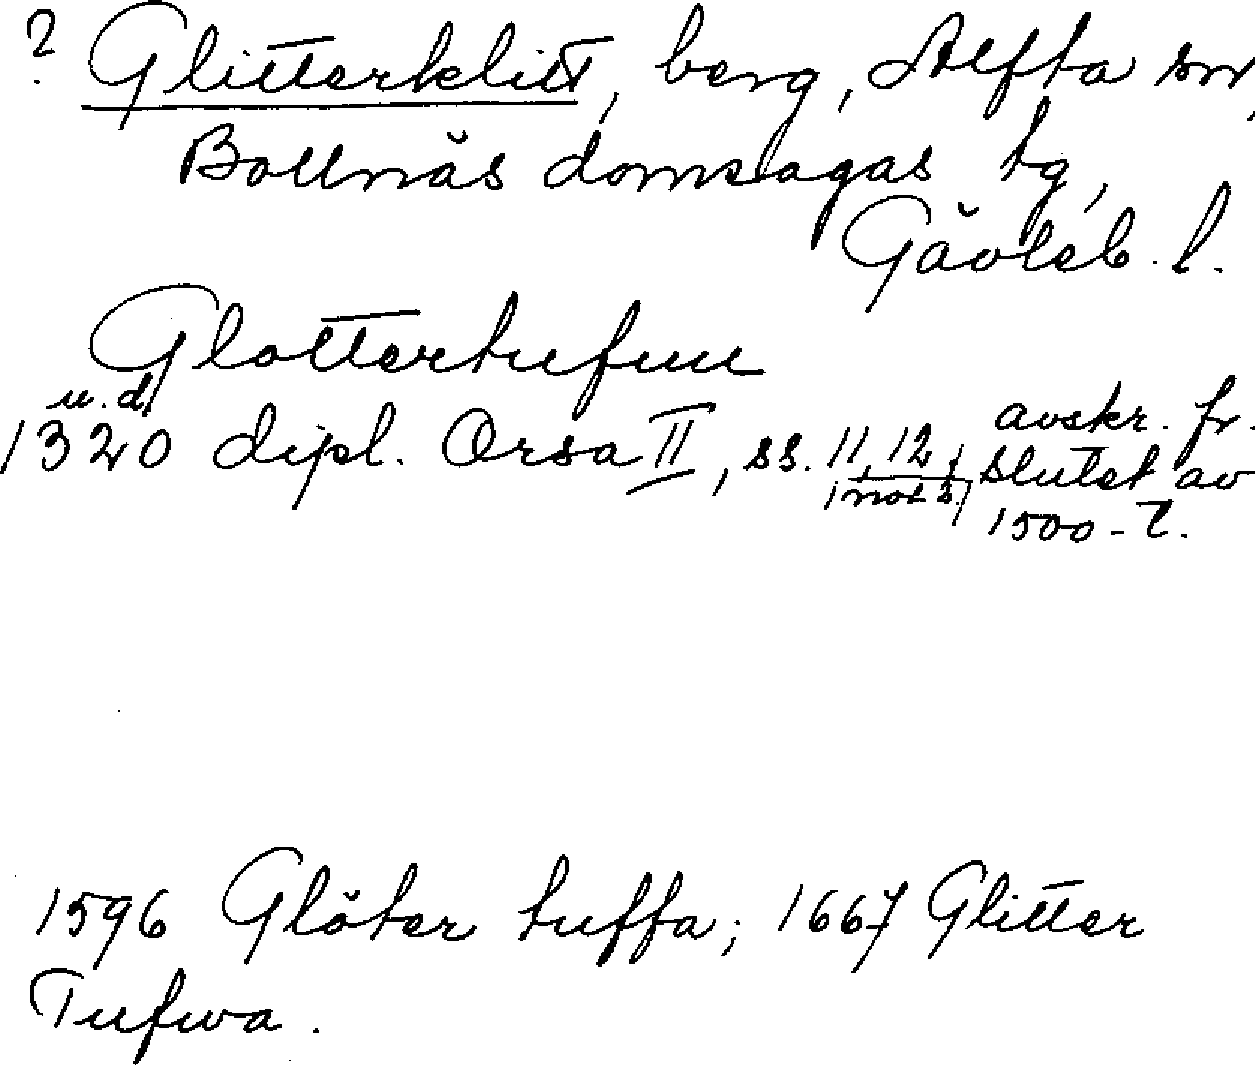 ? Glitterklitt, berg, Alfta sn,
Bollnäs domsagas tg,
Gävleb. l.
Glottertufuu
u. d.
1320 dipl. Orsa II, ss. 11, 12, avskr. fr.
not 3, slutet av
1500-t.
1596 Glöter tuffa; 1667 Glitter
Tufwa.